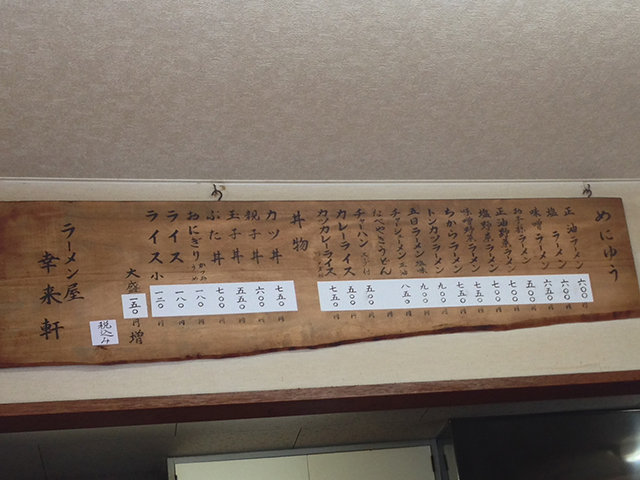 めにゅう
正油ラーメン 六〇〇円
塩ラーメン 六〇〇円
味噌ラーメン 六五〇円
ラーメン 五五〇円
正油野菜ラーメン 七五〇円
塩野菜ラーメン 七五〇円
味噌野菜ラーメン 七五〇円
ちからラーメン 九〇〇円
トンカツラーメン 九〇〇円
五目ラーメン 塩味
チャーシューメン 八五〇円
なべやきうどん
チャーハン 五〇〇円
カレーライス 五〇〇円
カツカレーライス 七五〇円
丼物
カツ丼 七五〇円
親子丼 六〇〇円
玉子丼 五五〇円
ぶた丼 七〇〇円
おにぎり 一八〇円
ライス 一八〇円
ライス小 一二〇円
大盛 一五〇円増
税込み
ラーメン屋
幸来軒